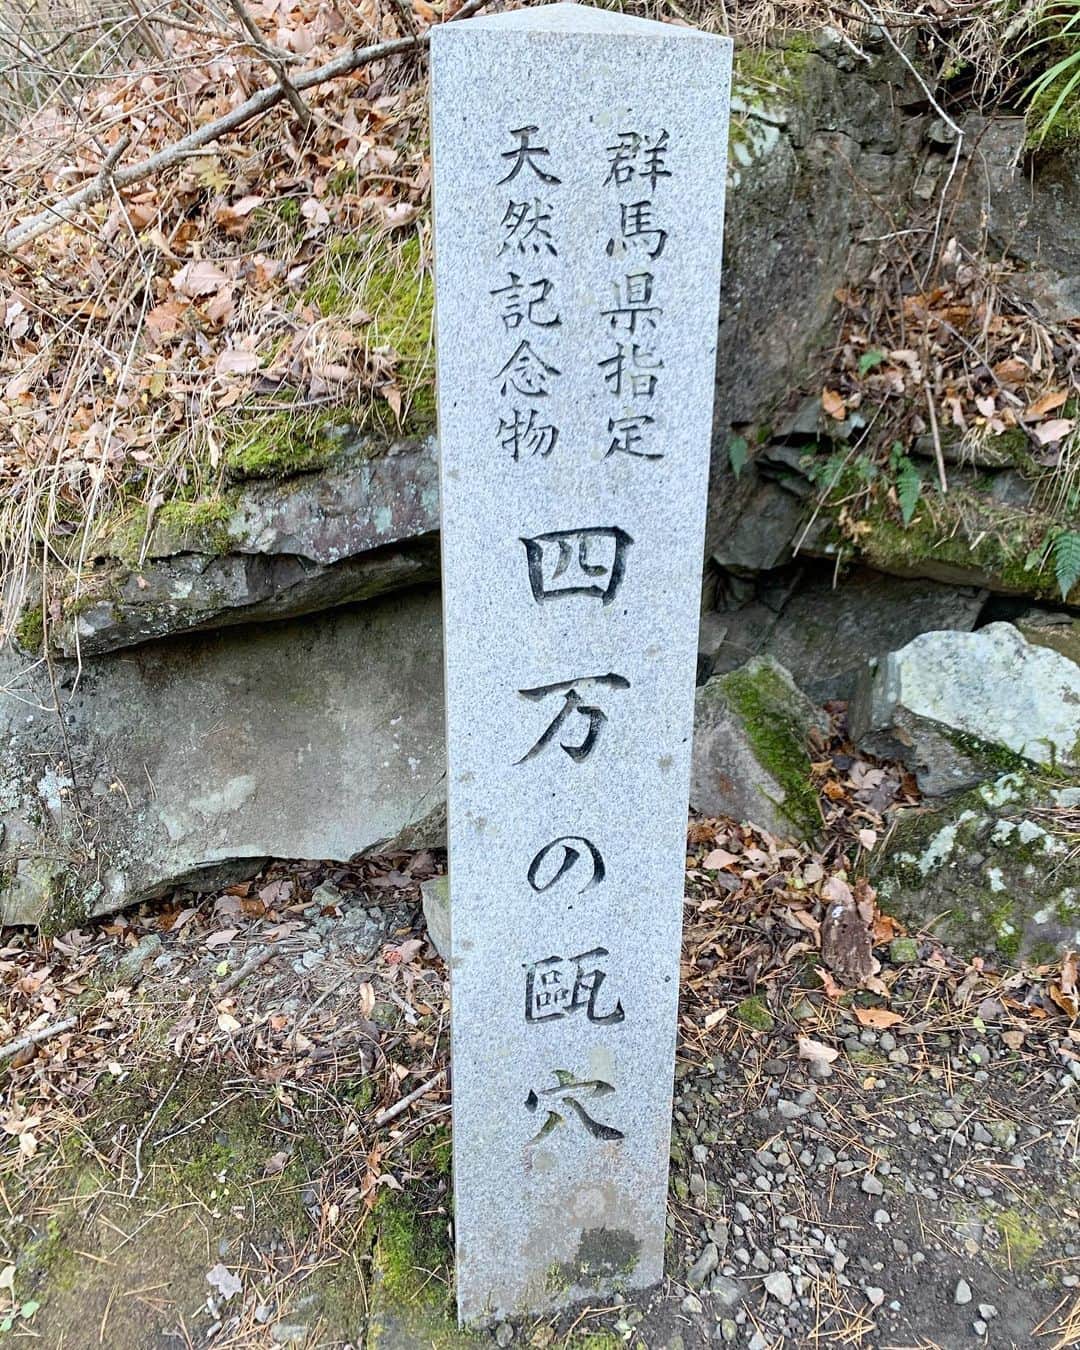 群馬県指定
天然記念物
四万の甌穴